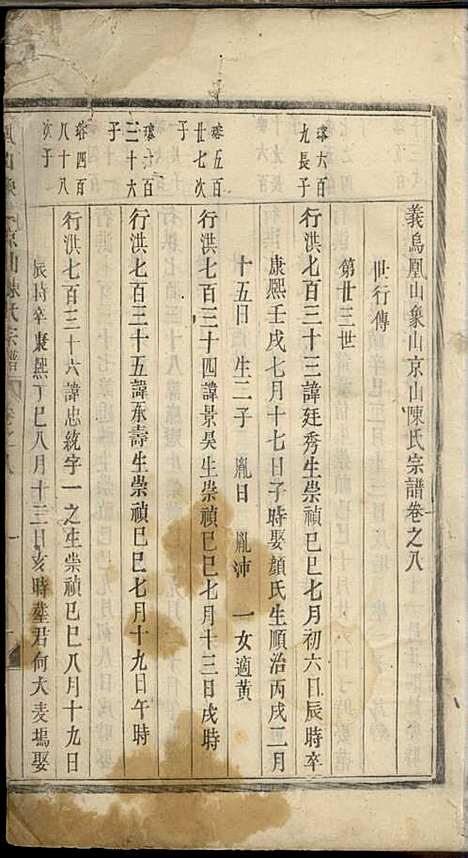 義烏鳳山象山京山陳氏宗譜卷之八
世行傳
第廿三世
瑢六百
九長子
行洪七百三十三諱廷秀生崇禎己巳七月初六日辰時卒
康熙壬戌七月十七日子時娶顏氏生順治丙戌二月
十五日 生二子 胤日 胤沛 一女適黃
瑢五百
廿七次
子
行洪七百三十四諱景昊生崇禎己巳七月十三日戌時
瑢六百
三十六
子
行洪七百三十五諱東壽生崇禎己巳七月十九日午時
瑢四百
八十八
次子
行洪七百三十六諱忠統字一之生崇禎己巳八月十九日
辰時卒康熙丁巳八月十三日亥時塟君何大麦塢娶
京山陳氏宗譜
卷之八
一